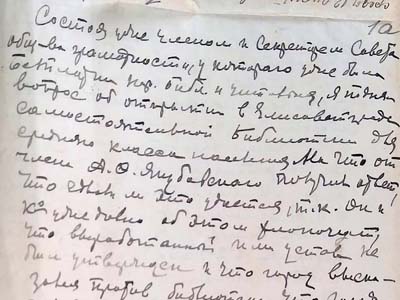 1а
Состоя уже членом и Секретарем Совета
общ-ва грамотности, у котораго уже была
библ. и читальня, я поднял
вопрос об открытии в Елисаветграде
самостоятельной библиотеки для
средняго класса населения. На что от
члена А. О. Якубовского получил ответ,
что едва ли это удается, т.к. он и
Ко уже давно об этом хлопочут,
что выработанный ими устав не
был утвержден и что город выска-
зался против библиотеки, что